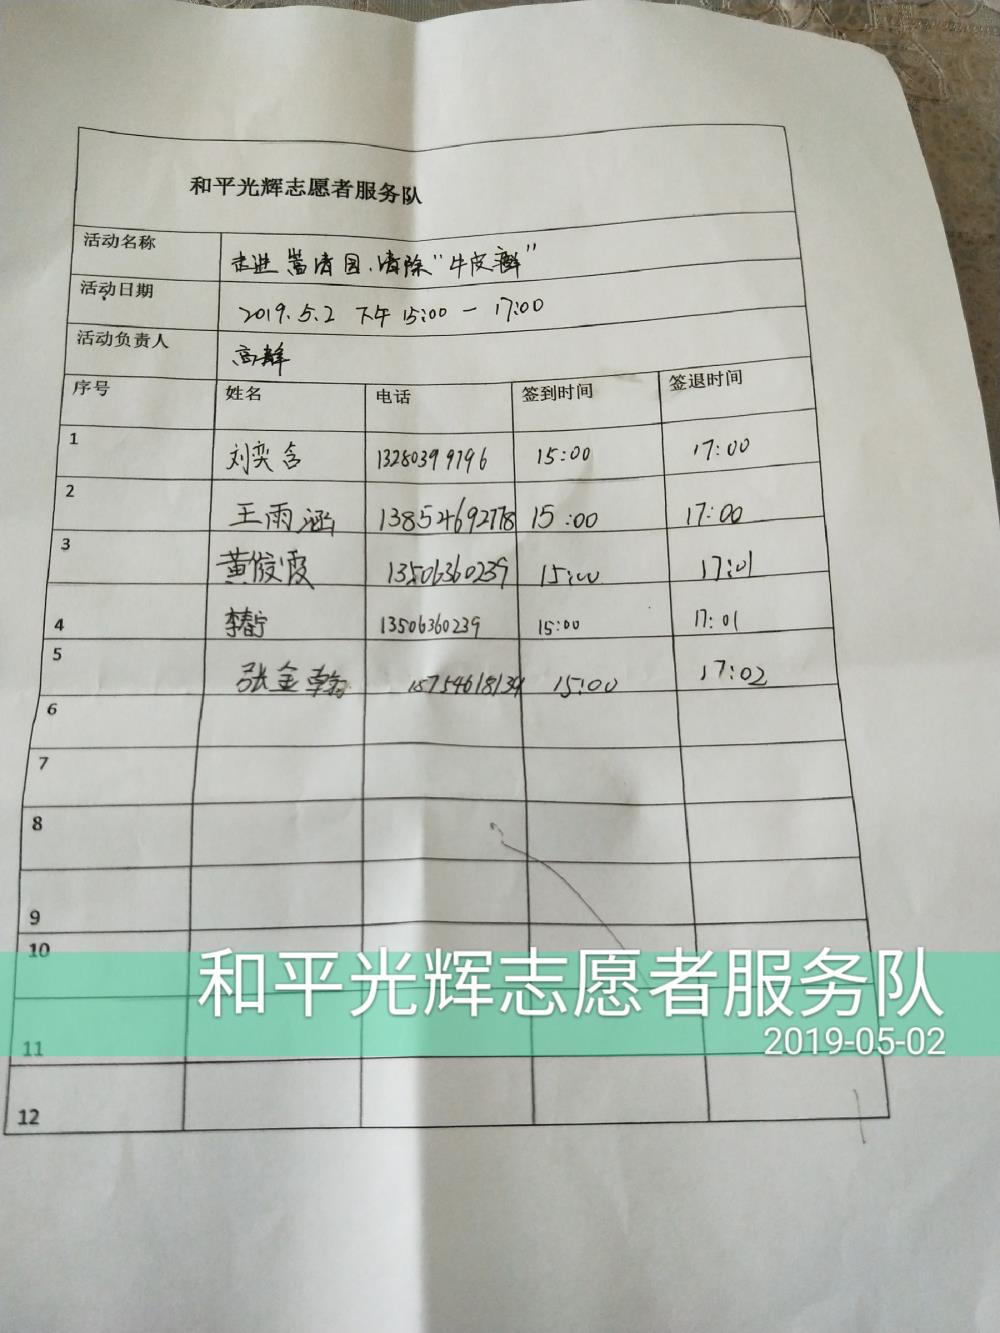 和平光辉志愿者服务队
活动名称
走进 蒿清园、清除“牛皮癣”
活动日期
2019.5.2 下午 15:00 — 17:00
活动负责人
高群
序号 姓名 电话 签到时间 签退时间
1 刘奕含 13280399796 15:00 17:00
2 王雨涵 13854692778 15:00 17:00
3 黄俊霞 13506360239 15:00 17:01
4 李宁 13506360239 15:00 17:01
5 张金翰 15754618139 15:00 17:02
6
7
8
9
10
11
12
和平光辉志愿者服务队
2019-05-02